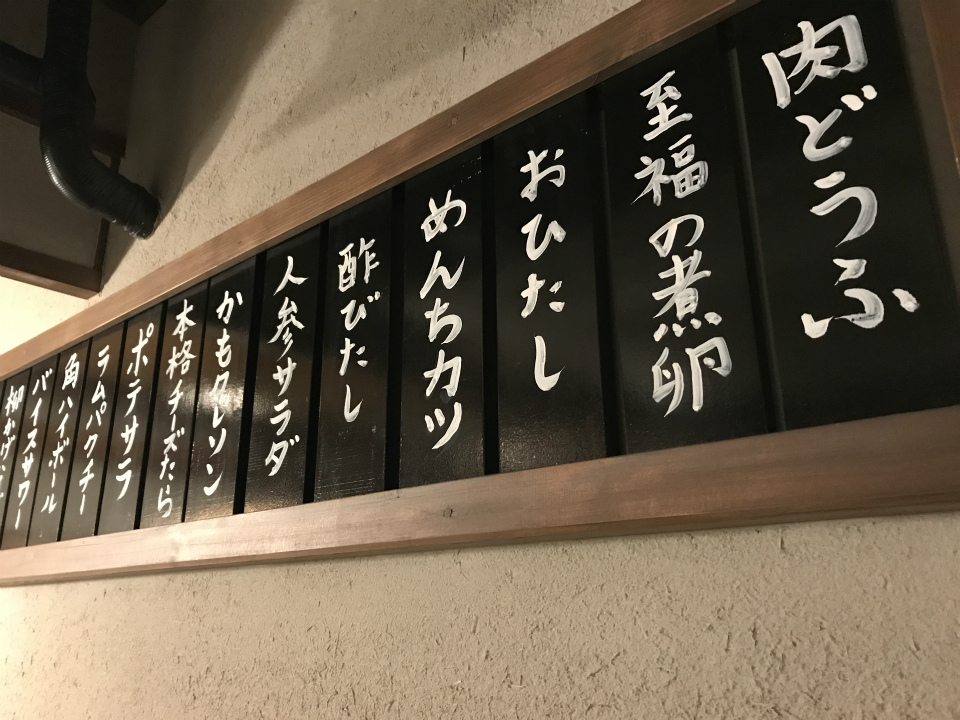 肉どうふ
至福の煮卵
おひたし
めんちカツ
酢びたし
人参サラダ
かもクレソン
本格チーズたら
ポテサラ
ラムパクチー
角ハイボール
バイスサワー
柳かげ